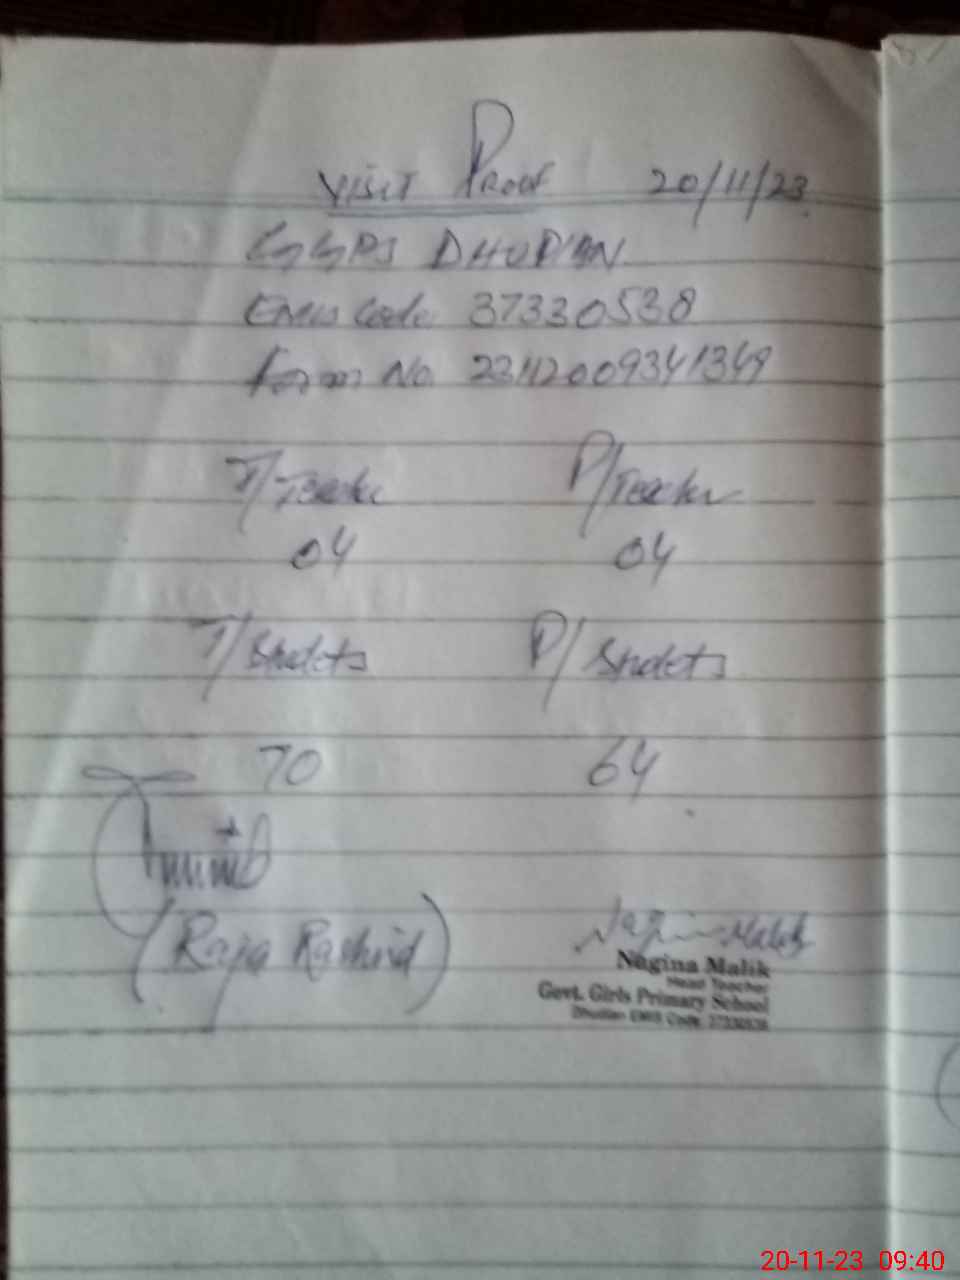 Visit Proof 20/11/23
GGPS DHULIAN
Emis Code 37330538
Form No. 23112009341349
T/Teacher P/Teacher
04 04
T/Studets P/Studets
70 64
(Raja Rashid)
Nagina Malik
Nagina Malik
Head Teacher
Govt. Girls Primary School
Dhulian EMIS Code: 37330538
20-11-23 09:40